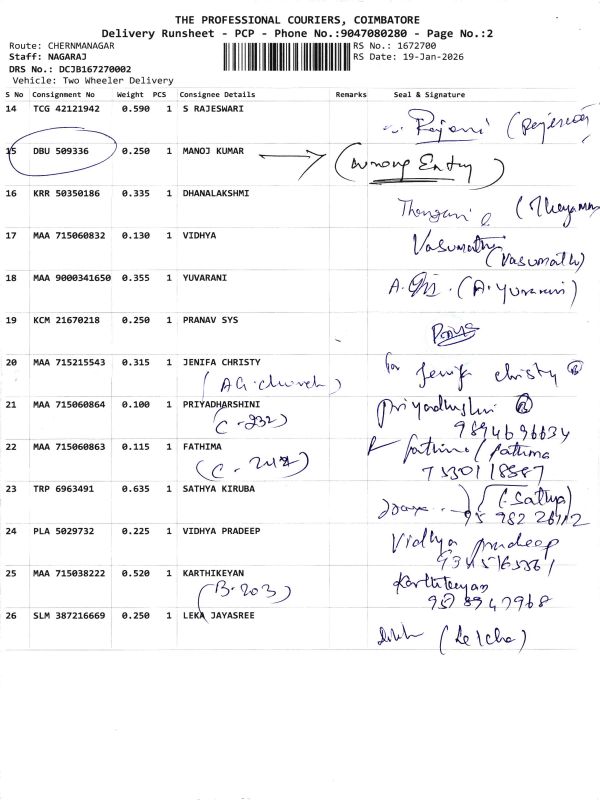 THE PROFESSIONAL COURIERS, COIMBATORE
Delivery Runsheet - PCP - Phone No.:9047080280 - Page No.:2
Route: CHERNMANAGAR RS No.: 1672700
Staff: NAGARAJ RS Date: 19-Jan-2026
DRS No.: DCJB167270002
Vehicle: Two Wheeler Delivery
S No Consignment No Weight PCS Consignee Details Remarks Seal & Signature
14 TCG 42121942 0.590 1 S RAJESWARI
15 DBU 509336 0.250 1 MANOJ KUMAR (Wrong Entry)
16 KRR 50350186 0.335 1 DHANALAKSHMI
17 MAA 715060832 0.130 1 VIDHYA Vasumathy
(Vasumathy)
18 MAA 9000341650 0.355 1 YUVARANI (A. Yuvarani)
19 KCM 21670218 0.250 1 PRANAV SYS
20 MAA 715215543 0.315 1 JENIFA CHRISTY for Jenifa christy
(AG. church)
21 MAA 715060864 0.100 1 PRIYADHARSHINI
(C-232) 9894696634
22 MAA 715060863 0.115 1 FATHIMA fathima / fathima
7530118587
23 TRP 6963491 0.635 1 SATHYA KIRUBA (Sathya)
24 PLA 5029732 0.225 1 VIDHYA PRADEEP Vidhya pradeep
25 MAA 715038222 0.520 1 KARTHIKEYAN Karthikeyan
(B-203)
26 SLM 387216669 0.250 1 LEKA JAYASREE